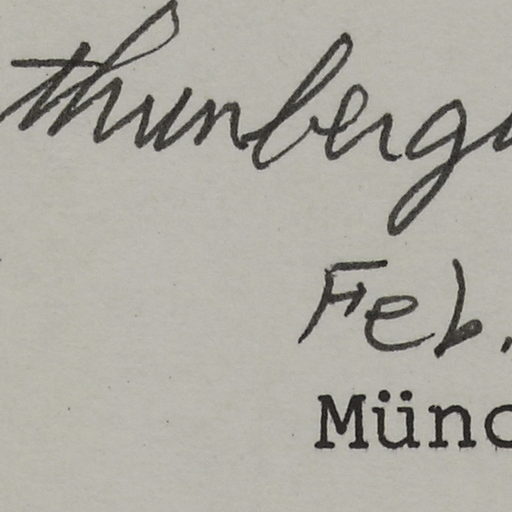 thunbergi
Feb.
Münc